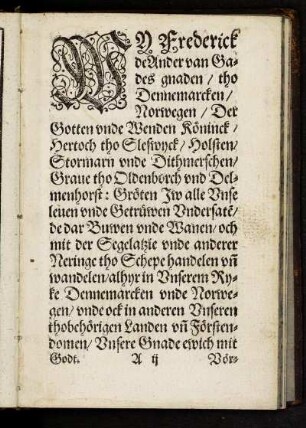 WY Frederick
de Ander van Ga-
des gnaden / tho
Dennemarcken /
Norwegen / Der
Gotten vnde Wenden Köninck /
Hertoch tho Sleswyck / Holsten /
Stormarn vnde Dithmerschen /
Graue tho Oldenborch vnd Del-
menhorst : Gröten Jw alle Vnse
leuen vnde Getrüwen Vndersatē /
de dar Buwen vnde Wanen / och
mit der Segelatzie vnde anderer
Neringe tho Schepe handelen vn̄
wandelen / alhyr in Vnserem Ry-
ke Dennemarcken vnde Norwe-
gen / vnde ock in anderen Vnseren
thobehörigen Landen vn̄ Försten-
domen / Vnsere Gnade ewich mit
Godt. A ij Vör-